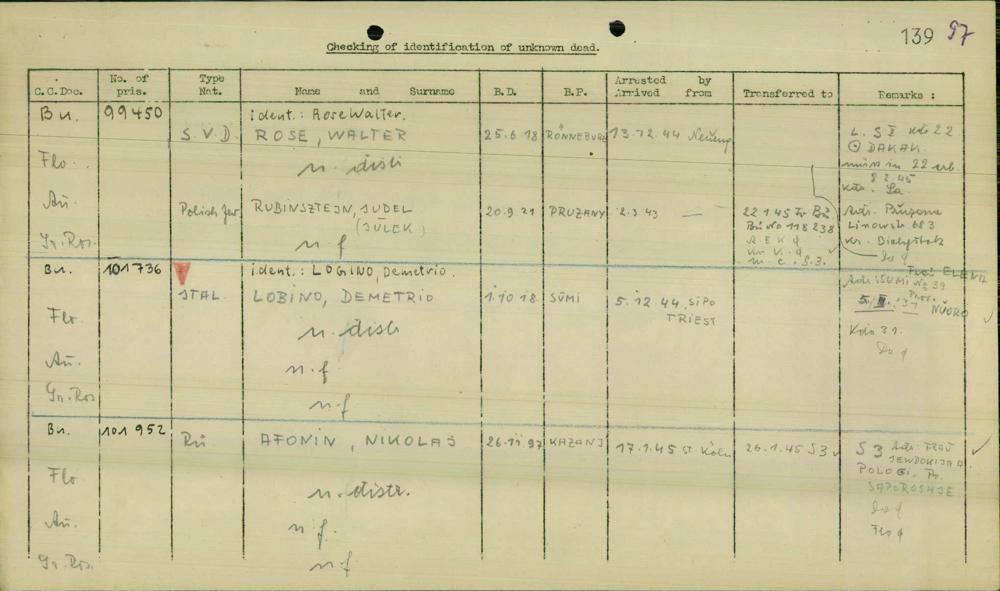 139 97
Checking of identification of unknown dead.
C.C.Doc. No. of pris. Type Nat. Name and Surname B.D. B.P. Arrested by Arrived from Transferred to Remarks :
Bu. 99450 ident.: Rose Walter.
S.V.D. ROSE, WALTER 25.6.18 RÖNNEBURG 13.12.44 Neueng L. S III Kdo 22
DAKAK
Flo. n. distr
22 erb.
8 2.45
Kdo. La
Au. Polish Jew RUBINSZTEJN, JUDEL 20.9.21 PRUZANY 2.3.43 — 22.1.45 Tr Bu. Adr. Pružana
(JULEK) Bu No 118238 Linowsk 683
Gr.Ros. n.f Kr. Bialystok
m c. S.3.
Bu. 101736 ident.: LOGINO, Demetrio. Frau ELENA
ITAL. LOBINO, DEMETRIO 1.10 18 SÜMI 5.12.44 SIPO Adr: SUMI No 39
TRIEST Prov. NUORO
Flo n. distr Kdo 31.
Au. n.f.
Gr.Ros n.f
Bu. 101952 Ru AFONIN, NIKOLAJ 26.11 97 KAZANJ 17.1.45 St. Köln 26.1.45 S3 S3 Adr. FRAU
JEWDOKIJA A.
POLOGI, Kr.
SAPOROSHJE
Flo n. distr.
Au. n f. Flo
Gr.Ros. n.f